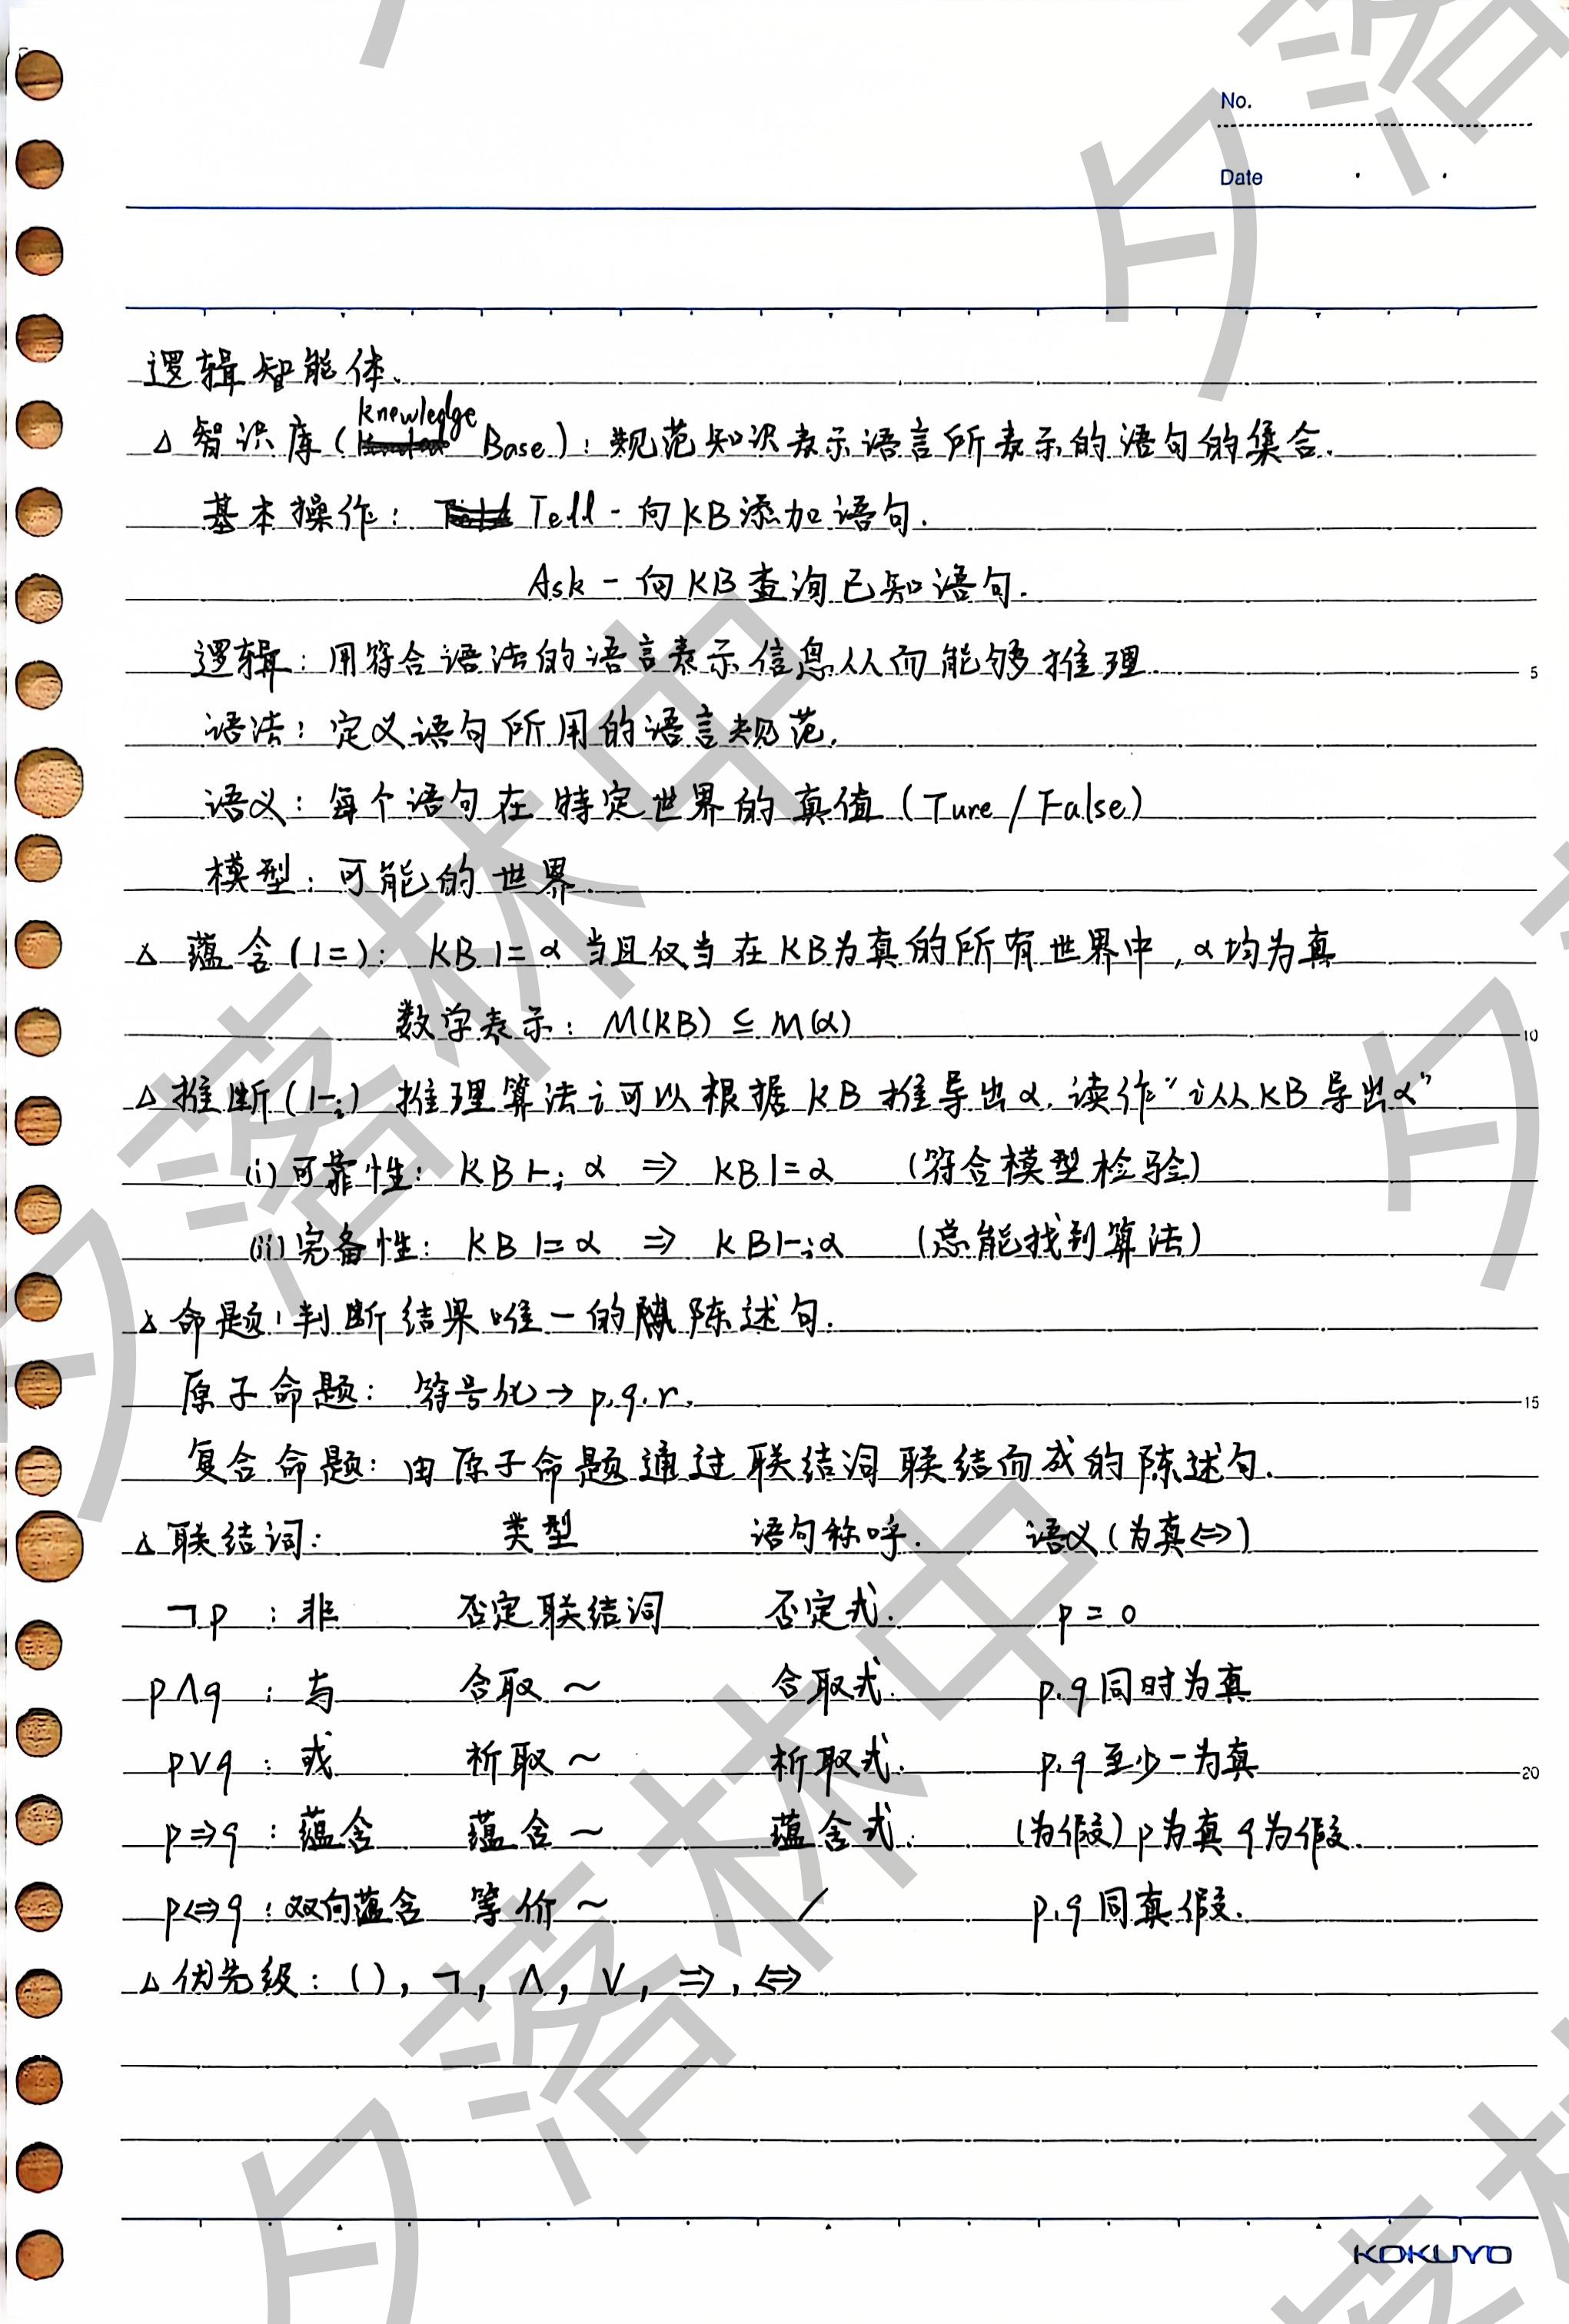 No.
Date
逻辑智能体.
△ 智识库(knowledge Base): 规范知识表示语言所表示的语句的集合.
基本操作: Tell - 向KB添加语句.
Ask - 向KB查询已知语句.
逻辑: 用符合语法的语言表示信息从而能够推理. 5
语法: 定义语句所用的语言规范.
语义: 每个语句在特定世界的真值 (Ture / False)
模型: 可能的世界.
△ 蕴含 (|=): KB |= α 当且仅当在KB为真的所有世界中, α均为真
数学表示: M(KB) ⊆ M(α) 10
△ 推断 (|-i) 推理算法i可以根据KB推导出α. 读作“i从KB导出α”
(i) 可靠性: KB |-i α ⇒ KB |= α (符合模型检验)
(ii) 完备性: KB |= α ⇒ KB |-i α (总能找到算法)
△ 命题: 判断结果唯一的陈述句.
原子命题: 符号化→ p.q.r. 15
复合命题: 由原子命题通过联结词联结而成的陈述句.
△ 联结词: 类型 语句称呼. 语义 (为真⇔)
¬p : 非 否定联结词 否定式. p = 0
p∧q : 与 合取~ 合取式. p.q同时为真
p∨q : 或 析取~ 析取式. p.q至少一为真 20
p⇒q : 蕴含 蕴含~ 蕴含式. (为假) p为真q为假.
p⇔q : 双向蕴含 等价~ / p.q同真假.
△ 优先级: ( ), ¬, ∧, ∨, ⇒, ⇔
KOKUYO
夕落林中
夕落林中
夕落
夕